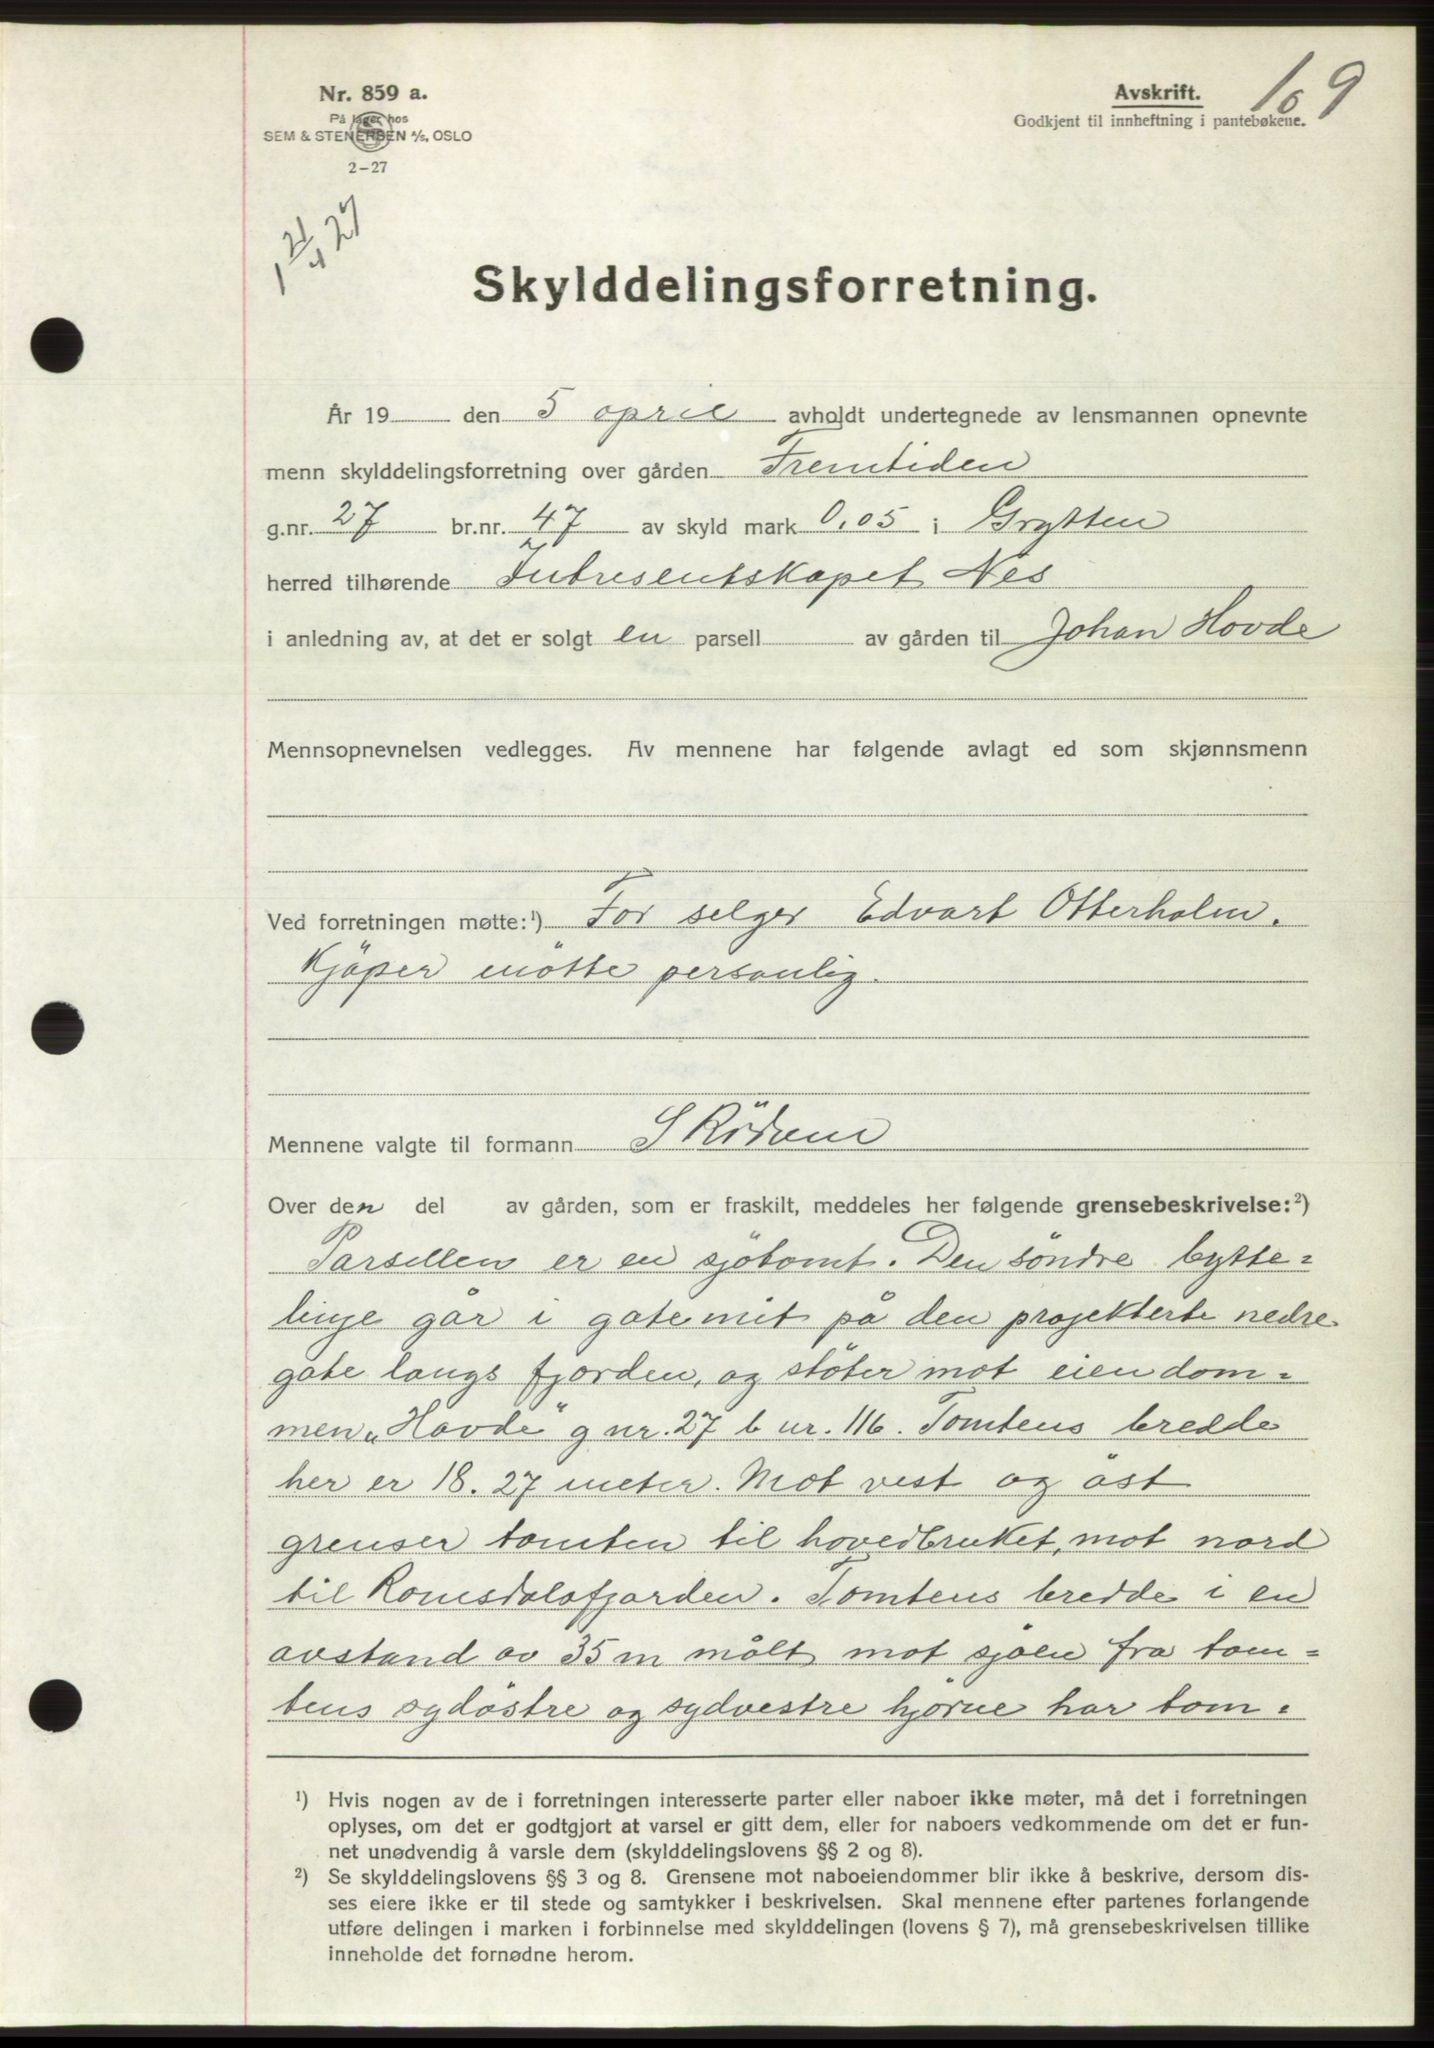 Nr. 859 a.
På lager hos
SEM & STENERSEN A/S, OSLO
2-27
Avskrift.
Godkjent til innheftning i pantebøkene.
169
1 21/4 27
Skylddelingsforretning.
År 19 den 5 april avholdt undertegnede av lensmannen opnevnte
menn skylddelingsforretning over gården Fremtiden
g.nr. 27 br.nr. 47 av skyld mark 0,05 i Grytten
herred tilhørende Intresentskapet Nes
i anledning av, at det er solgt en parsell av gården til Johan Hovde
Mennsopnevnelsen vedlegges. Av mennene har følgende avlagt ed som skjønnsmenn
Ved forretningen møtte:¹) For selger Edvart Otterholm.
Kjöper mötte personlig.
Mennene valgte til formann S Rödven
Over den del av gården, som er fraskilt, meddeles her følgende grensebeskrivelse:²)
Parsellen er en sjötomt. Den söndre bytte=
linje går i gatemit på den projekterte nedre
gate langs fjorden, og stöter mot eiendom=
men „Hovde" g nr. 27 b nr. 116. Tomtens bredde
her er 18.27 meter. Mot vest og öst
grenser tomten til hovedbruket, mot nord
til Romsdalsfjorden. Tomtens bredde i en
avstand av 35 m målt mot sjöen fra tom=
tens sydöstre og sydvestre hjörne har tom=
¹) Hvis nogen av de i forretningen interesserte parter eller naboer ikke møter, må det i forretningen
oplyses, om det er godtgjort at varsel er gitt dem, eller for naboers vedkommende om det er fun-
net unødvendig å varsle dem (skylddelingslovens §§ 2 og 8).
²) Se skylddelingslovens §§ 3 og 8. Grensene mot naboeiendommer blir ikke å beskrive, dersom dis-
ses eiere ikke er til stede og samtykker i beskrivelsen. Skal mennene efter partenes forlangende
utføre delingen i marken i forbinnelse med skylddelingen (lovens § 7), må grensebeskrivelsen tillike
inneholde det fornødne herom.